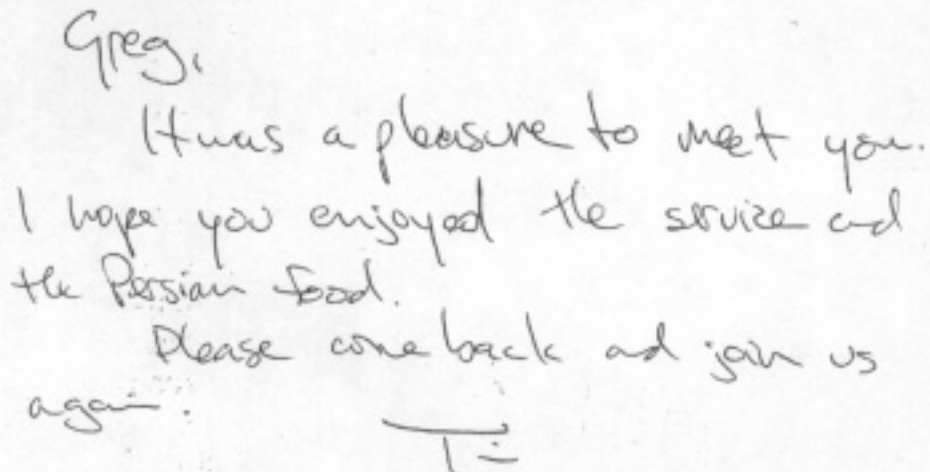 Greg,
It was a pleasure to meet you.
I hope you enjoyed the service and
the Persian food.
Please come back and join us
again.